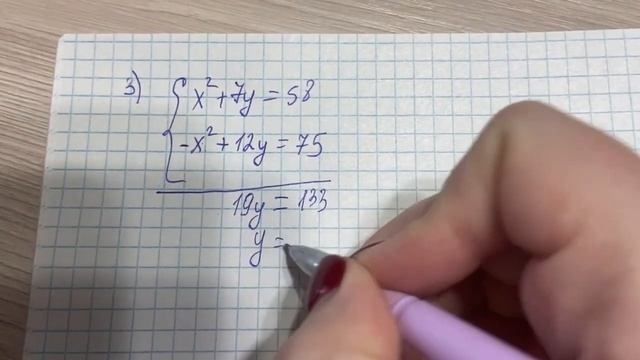 3) x²+7y=58
-x²+12y=75
19y=133
y=